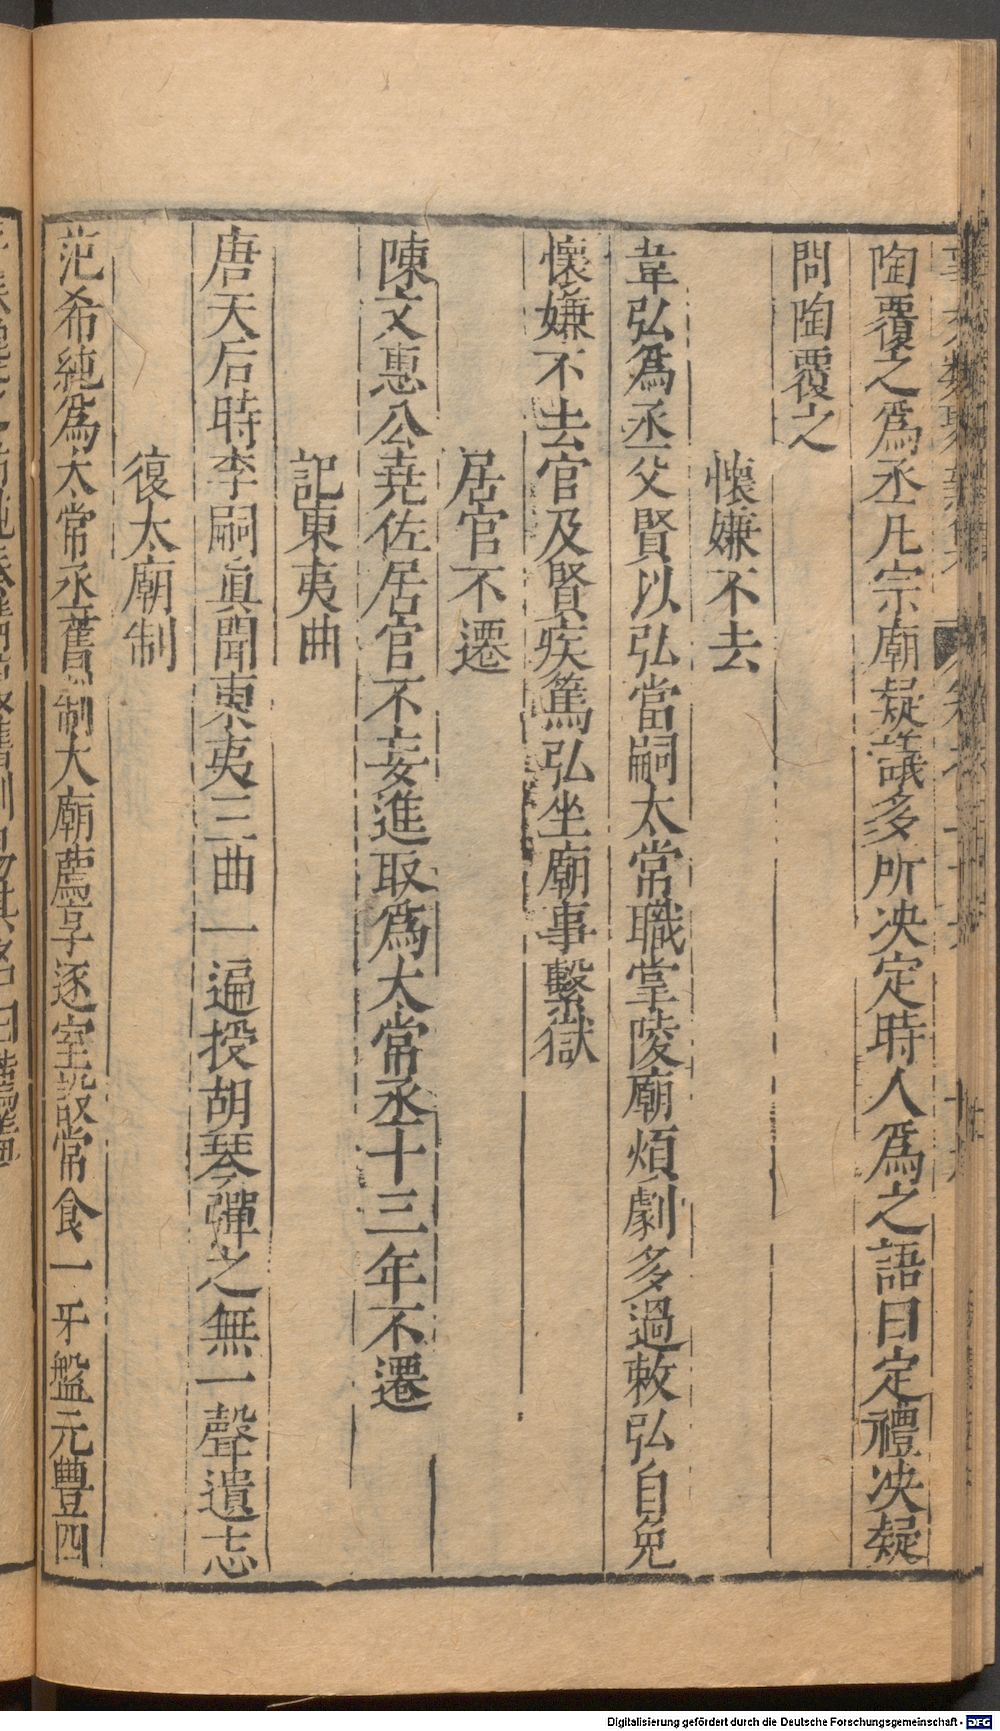 陶覆之爲丞凡宗廟疑議多所决定時人爲之語曰定禮决疑
問陶覆之
懷嫌不去
韋弘爲丞父賢以弘當嗣太常職掌陵廟煩劇多過敕弘自免
懷嫌不去官及賢疾篤弘坐廟事繫獄
居官不遷
陳文惠公堯佐居官不妄進取爲太常丞十三年不遷
記東夷曲
唐天后時李嗣眞聞東夷三曲一遍授胡琴彈之無一聲遺忘
復太廟制
范希純爲太常丞舊制大廟薦享逐室設常食一牙盤元豐四
Digitalisierung gefördert durch die Deutsche Forschungsgemeinschaft - DFG